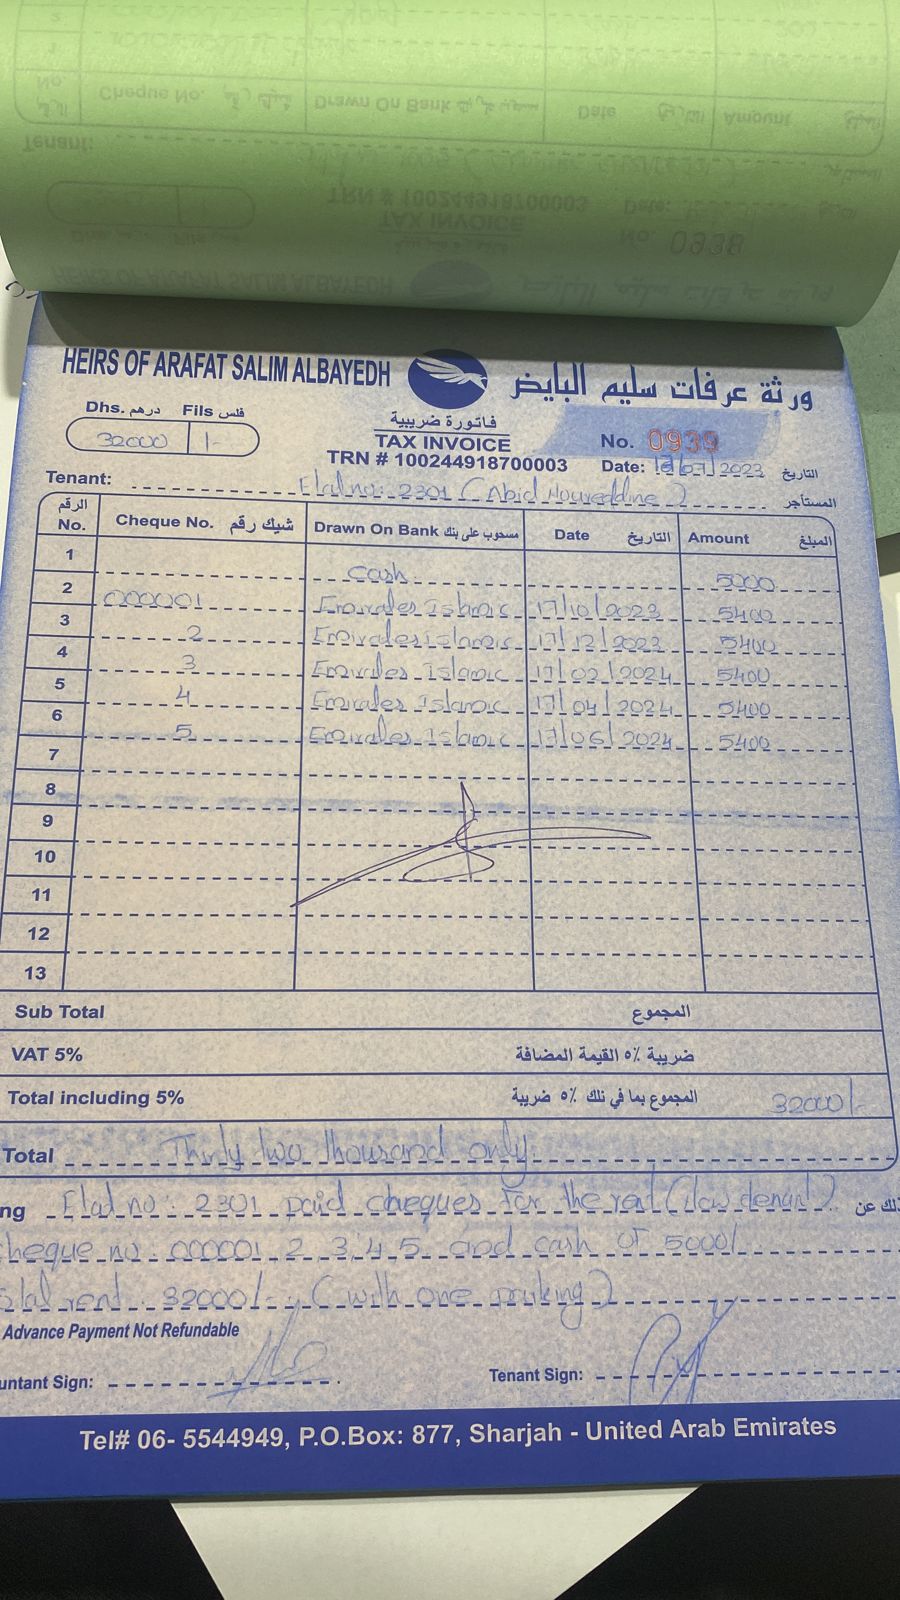 HEIRS OF ARAFAT SALIM ALBAYEDH ورثة عرفات سليم البايض
Dhs. درهم Fils فلس
32000 /-
فاتورة ضريبية
TAX INVOICE
TRN # 100244918700003
No. 0939
Date: 07/2023 التاريخ
Tenant: Flat no: 2301 (Abid Noureddine) المستأجر
الرقم No. Cheque No. شيك رقم Drawn On Bank مسحوب على بنك Date التاريخ Amount المبلغ
1 Cash 5000
2 000001 Emirates Islamic 17/10/2023 5400
3 2 Emirates islamic 17/12/2023 5400
4 3 Emirates Islamic 17/02/2024 5400
5 4 Emirates Islamic 17/04/2024 5400
6 5 Emirates Islamic 17/06/2024 5400
7
8
9
10
11
12
13
Sub Total المجموع
VAT 5% ضريبة ٥٪ القيمة المضافة
Total including 5% المجموع بما في ذلك ٥٪ ضريبة 32000/-
Total Thirty two thousand only
ng Flat no: 2301 paid cheques for the rent ذلك عن
heque no: 000001 2 3,4,5 and cash of 5000/
Flat rent: 32000/- (with one parking)
Advance Payment Not Refundable
untant Sign: Tenant Sign:
Tel# 06- 5544949, P.O.Box: 877, Sharjah - United Arab Emirates